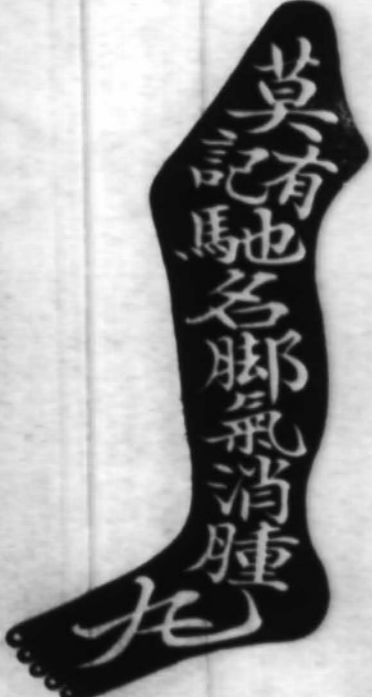 莫有記馳名脚氣消腫丸